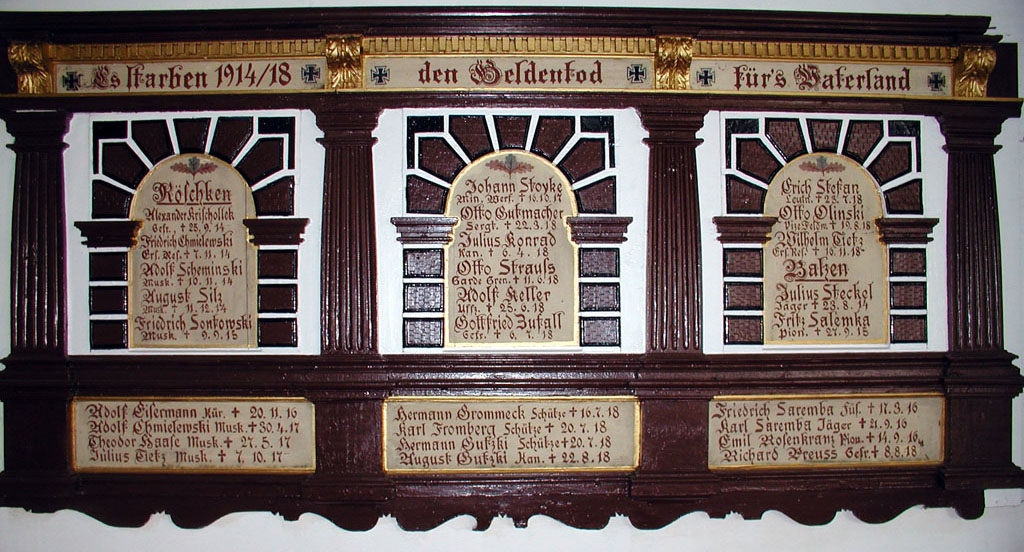 Es starben 1914/18 den Heldentod für's Vaterland
Röschken
Alexander Krischollek
Gefr. ✝ 25. 9. 14
Friedrich Chmielewski
Ers. Res. ✝ 7. 11. 14
Adolf Scheminski
Musk. ✝ 10. 11. 14
August Silz
Musk. ✝ 11. 12. 14
Friedrich Sonkowski
Musk. ✝ 9. 9. 15
Johann Stoyke
Min. Werf. ✝ 16. 10. 17
Otto Gutmacher
Sergt. ✝ 22. 3. 18
Julius Konrad
Kan. ✝ 6. 4. 18
Otto Strauſs
Garde Gren. ✝ 11. 6. 18
Adolf Keller
Uffz. ✝ 25. 6. 18
Gottfried Zufall
Gefr. ✝ 6. 18
Erich Stefan
Leutn. ✝ 23. 7. 18
Otto Olinski
Vizefeldw. ✝ 19. 8. 18
Wilhelm Tietz
Ers. Res. ✝ 10. 11. 18
Balzen
Julius Steckel
Jäger ✝ 23. 8. 14
Fritz Salemka
Pion. ✝ 27. 9. 15
Adolf Eisermann Kür. ✝ 20. 11. 16
Adolf Chmielewski Musk. ✝ 30. 4. 17
Theodor Haase Musk. ✝ 27. 5. 17
Julius Tietz Musk. ✝ 7. 10. 17
Hermann Grommeck Schütze ✝ 16. 7. 18
Karl Fromberg Schütze ✝ 20. 7. 18
Hermann Gutzki Schütze ✝ 20. 7. 18
August Gutzki Kan. ✝ 22. 8. 18
Friedrich Saremba Füs. ✝ 17. 3. 16
Karl Saremba Jäger ✝ 21. 9. 16
Emil Rosenkranz Pion. ✝ 14. 9. 18
Richard Preuss Gefr. ✝ 8. 8. 18